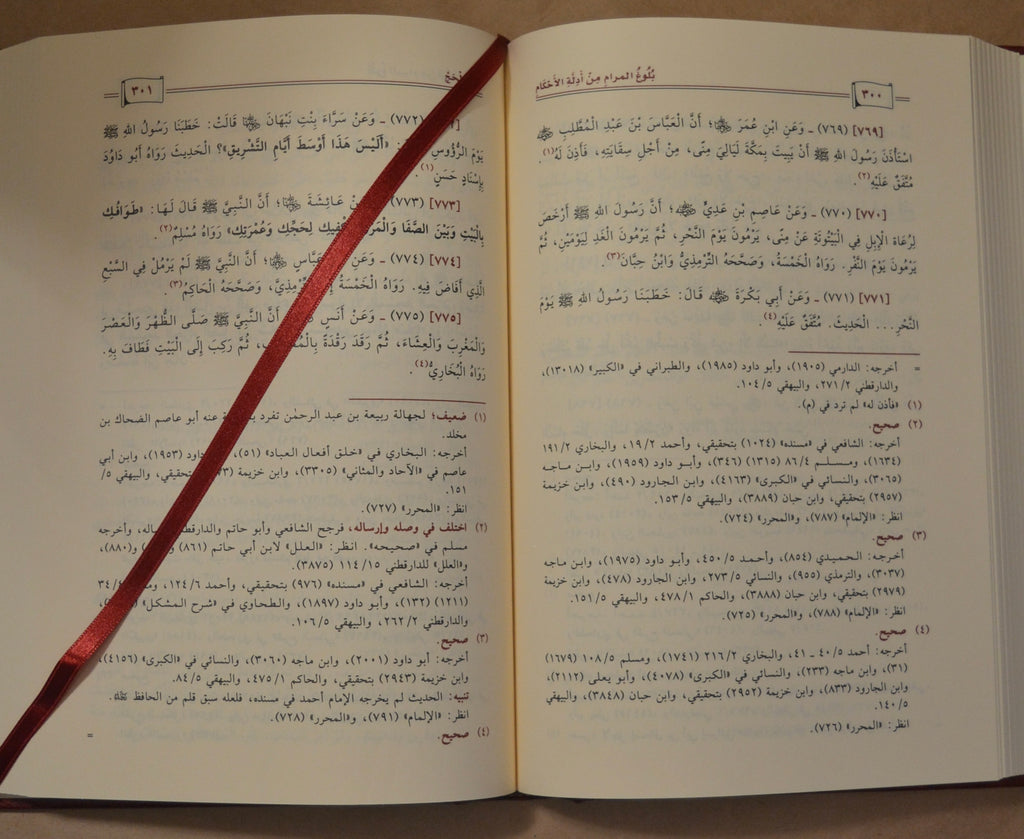 بُلُوغُ المرام مِنْ أَدِلَّةِ الأَحْكَام
٣٠٠
[٧٦٩] (٧٦٩) ـ وَعَنِ ابْنِ عُمَرَ ﷺ؛ أَنَّ الْعَبَّاسَ بْنَ عَبْدِ الْمُطَّلِبِ
اسْتَأْذَنَ رَسُولَ اللهِ ﷺ أَنْ يَبِيتَ بِمَكَّةَ لَيَالِيَ مِنًى، مِنْ أَجْلِ سِقَايَتِهِ، فَأَذِنَ لَهُ(١).
مُتَّفَقٌ عَلَيْهِ(٢).
[٧٧٠] (٧٧٠) ـ وَعَنْ عَاصِمِ بْنِ عَدِيٍّ؛ أَنَّ رَسُولَ اللهِ ﷺ أَرْخَصَ
لِرُعَاةِ الْإِبِلِ فِي الْبَيْتُوتَةِ عَنْ مِنًى، يَرْمُونَ يَوْمَ النَّحْرِ، ثُمَّ يَرْمُونَ الْغَدَ لِيَوْمَيْنِ، ثُمَّ
يَرْمُونَ يَوْمَ النَّفْرِ. رَوَاهُ الْخَمْسَةُ، وَصَحَّحَهُ التِّرْمِذِيُّ وَابْنُ حِبَّانَ(٣).
[٧٧١] (٧٧١) ـ وَعَنْ أَبِي بَكْرَةَ قَالَ: خَطَبَنَا رَسُولُ اللهِ ﷺ يَوْمَ
النَّحْرِ... الْحَدِيثَ. مُتَّفَقٌ عَلَيْهِ(٤).
= أخرجه: الدارمي (١٩٠٥)، وأبو داود (١٩٨٥)، والطبراني في «الكبير» (١٣٠١٨)،
والدارقطني ٢٧١/٢، والبيهقي ١٠٤/٥.
(١) «فأذن له» لم ترد في (م).
(٢) صحيح.
أخرجه: الشافعي في «مسنده» (١٠٢٤) بتحقيقي، وأحمد ١٩/٢، والبخاري ١٩١/٢
(١٦٣٤)، ومسلم ٨٦/٤ (١٣١٥) (٣٤٦)، وأبو داود (١٩٥٩)، وابن ماجه
(٣٠٦٥)، والنسائي في «الكبرى» (٤١٦٣)، وابن الجارود (٤٩٠)، وابن خزيمة
(٢٩٥٧) بتحقيقي، وابن حبان (٣٨٨٩)، والبيهقي ١٥٣/٥.
انظر: «الإلمام» (٧٨٧)، و«المحرر» (٧٢٤).
(٣) صحيح.
أخرجه: الحميدي (٨٥٤)، وأحمد ٤٥٠/٥، وأبو داود (١٩٧٥)، وابن ماجه
(٣٠٣٧)، والترمذي (٩٥٥)، والنسائي ٢٧٣/٥، وابن الجارود (٤٧٨)، وابن خزيمة
(٢٩٧٩) بتحقيقي، وابن حبان (٣٨٨٨)، والحاكم ٤٧٨/١، والبيهقي ١٥١/٥.
انظر: «الإلمام» (٧٨٨)، و«المحرر» (٧٢٥).
(٤) صحيح.
أخرجه: أحمد ٤٠/٥ ـ ٤١، والبخاري ٢١٦/٢ (١٧٤١)، ومسلم ١٠٨/٥ (١٦٧٩)
(٣١)، وابن ماجه (٢٣٣)، والنسائي في «الكبرى» (٤٠٧٨)، وأبو يعلى (٢١١٢)،
وابن الجارود (٨٣٣)، وابن خزيمة (٢٩٥٢) بتحقيقي، وابن حبان (٣٨٤٨)، والبيهقي
١٤٠/٥.
انظر: «المحرر» (٧٢٦).
٣٠١
(٧٧٢) ـ وَعَنْ سَرَّاءَ بِنْتِ نَبْهَانَ قَالَتْ: خَطَبَنَا رَسُولُ اللهِ ﷺ
يَوْمَ الرُّؤُوسِ: «أَلَيْسَ هَذَا أَوْسَطَ أَيَّامِ التَّشْرِيقِ»؟ الْحَدِيثَ رَوَاهُ أَبُو دَاوُدَ
بِإِسْنَادٍ حَسَنٍ(١).
[٧٧٣] (٧٧٣) عَائِشَةَ؛ أَنَّ النَّبِيَّ ﷺ قَالَ لَهَا: «طَوَافُكِ
بِالْبَيْتِ وَبَيْنَ الصَّفَا وَالْمَرْ يَكْفِيكِ لِحَجِّكِ وَعُمْرَتِكِ» رَوَاهُ مُسْلِمٌ(٢).
[٧٧٤] (٧٧٤) ـ وَعَنِ عَبَّاسٍ؛ أَنَّ النَّبِيَّ ﷺ لَمْ يَرْمُلْ فِي السَّبْعِ
الَّذِي أَفَاضَ فِيهِ. رَوَاهُ الْخَمْسَةُ إِ رْمِذِيَّ، وَصَحَّحَهُ الْحَاكِمُ(٣).
[٧٧٥] (٧٧٥) ـ وَعَنْ أَنَسٍ أَنَّ النَّبِيَّ ﷺ صَلَّى الظُّهْرَ وَالْعَصْرَ
وَالْمَغْرِبَ وَالْعِشَاءَ، ثُمَّ رَقَدَ رَقْدَةً بِالْمُ بِ، ثُمَّ رَكِبَ إِلَى الْبَيْتِ فَطَافَ بِهِ.
رَوَاهُ الْبُخَارِيُّ(٤).
(١) ضعيف؛ لجهالة ربيعة بن عبد الرحمٰن تفرد عنه أبو عاصم الضحاك بن
مخلد.
أخرجه: البخاري في «خلق أفعال العباد» (٥١)، داود (١٩٥٣)، وابن أبي
عاصم في «الآحاد والمثاني» (٣٣٠٥)، وابن خزيمة بتحقيقي، والبيهقي ٥/
١٥١.
انظر: «المحرر» (٧٢٧).
(٢) اختلف في وصله وإرساله، فرجح الشافعي وأبو حاتم والدارقطني ساله، وأخرجه
مسلم في «صحيحه». انظر: «العلل» لابن أبي حاتم (٨٦١) و(٨٨٠)،
و«العلل» للدارقطني ١١٤/١٥ (٣٨٧٥).
أخرجه: الشافعي في «مسنده» (٩٧٦) بتحقيقي، وأحمد ١٢٤/٦، ٣٤/٤
(١٢١١) (١٣٢)، وأبو داود (١٨٩٧)، والطحاوي في «شرح المشكل»
والدارقطني ٢٦٢/٢، والبيهقي ١٠٦/٥.
(٣) صحيح.
أخرجه: أبو داود (٢٠٠١)، وابن ماجه (٣٠٦٠)، والنسائي في «الكبرى» (٤١٥٦)،
وابن خزيمة (٢٩٤٣) بتحقيقي، والحاكم ٤٧٥/١، والبيهقي ٨٤/٥.
تنبيه: الحديث لم يخرجه الإمام أحمد في مسنده، فلعله سبق قلم من الحافظ.
انظر: «الإلمام» (٧٩١)، و«المحرر» (٧٢٨).
(٤) صحيح. =